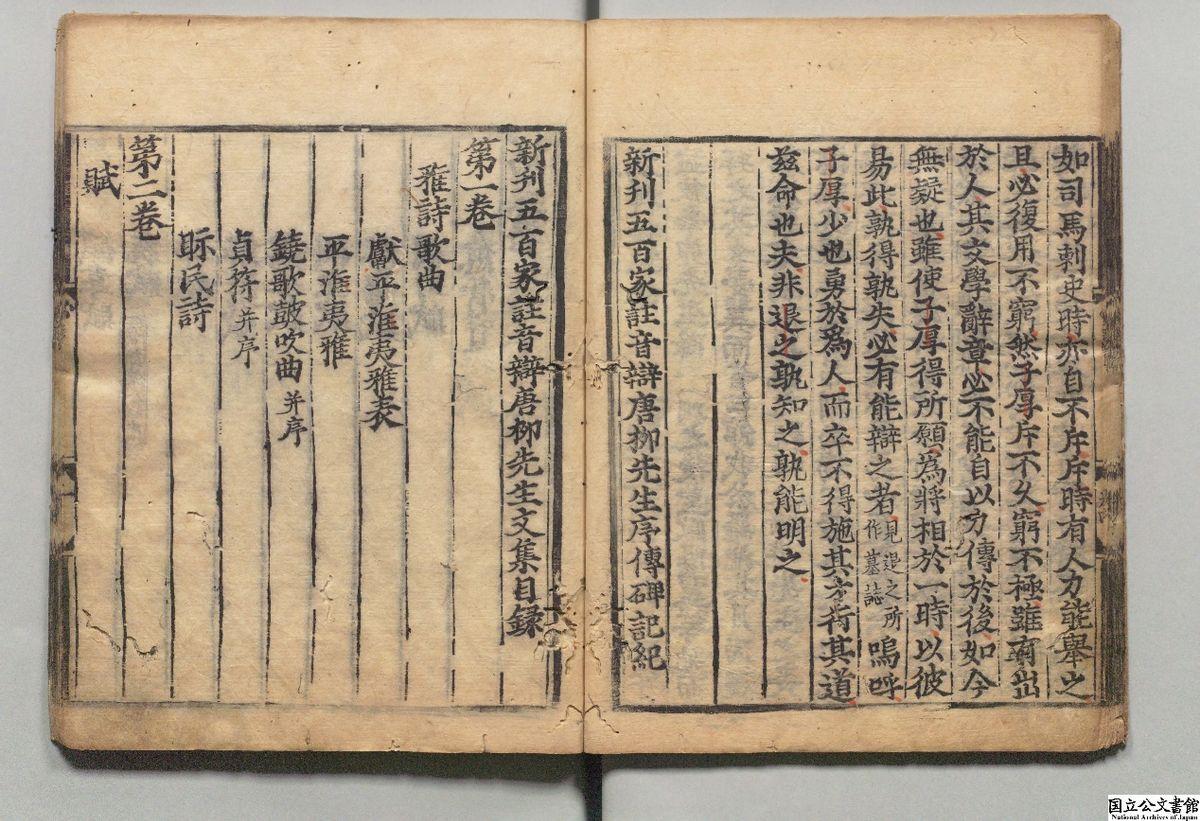 如司馬刺史時亦自不斥斥時有人力能舉之
且必復用不窮然子厚斥不久窮不極雖有出
於人其文學辭章必不能自以力傳於後如今
無疑也雖使子厚得所願為將相於一時以彼
易此孰得孰失必有能辯之者見退之所作墓誌嗚呼
子厚少也勇於為人而卒不得施其才術其道
玆命也夫非退之孰知之孰能明之
新刊五百家註音辯唐柳先生序傳碑記紀
新刊五百家註音辯唐柳先生文集目録
第一卷
雅詩歌曲
獻平淮夷雅表
平淮夷雅
鐃歌鼓吹曲并序
貞符并序
眎民詩
第二卷
賦
国立公文書館
National Archives of Japan